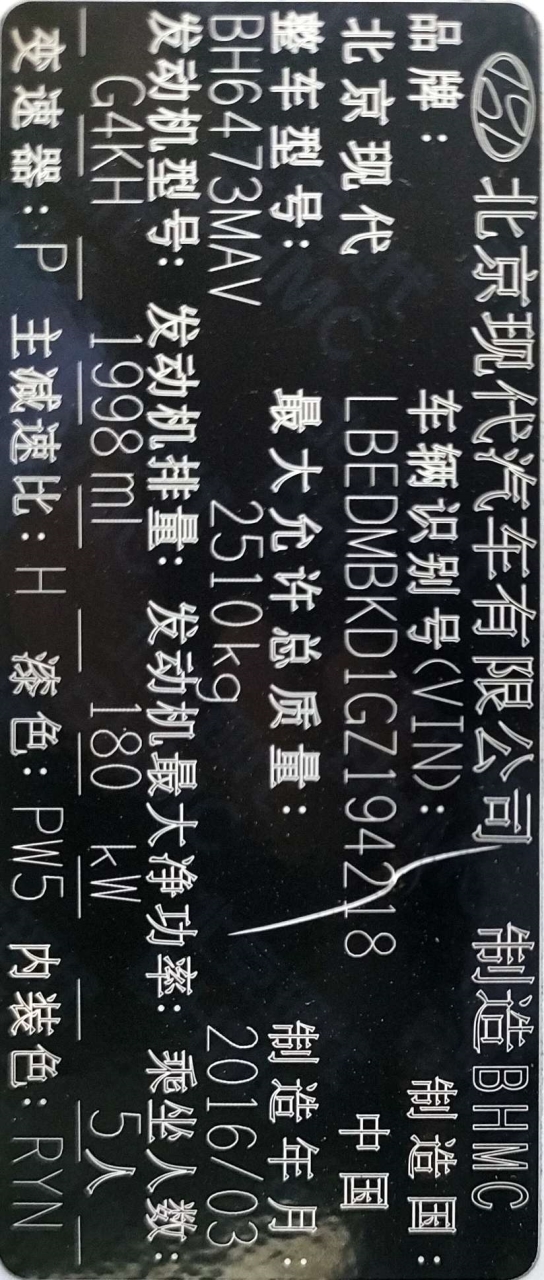 北京现代汽车有限公司 制造 BHMC
品牌: 车辆识别号(VIN): 制造国:
北京现代 LBEDMBKD1GZ194218 中国
整车型号: 最大允许总质量: 制造年月:
BH6473MAV 2510kg 2016/03
发动机型号: 发动机排量: 发动机最大净功率: 乘坐人数:
G4KH 1998ml 180 kW 5人
变速器: P 主减速比: H 漆色: PW5 内装色: RYN